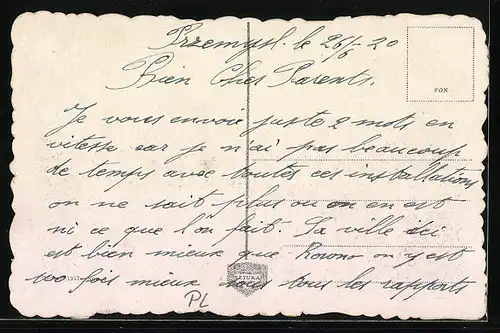 Przemysl. le 26/5 20
Bien Chers Parents.
FON
Je vous envoie juste 2 mots en
vitesse car je n'ai pas beaucoup
de temps avec toutes ces installations
on ne sait plus ou on en est
ni ce que l'on fait. La ville d'ici
est bien mieux que Rowno on y est
100 fois mieux sous tous les rapports
PL